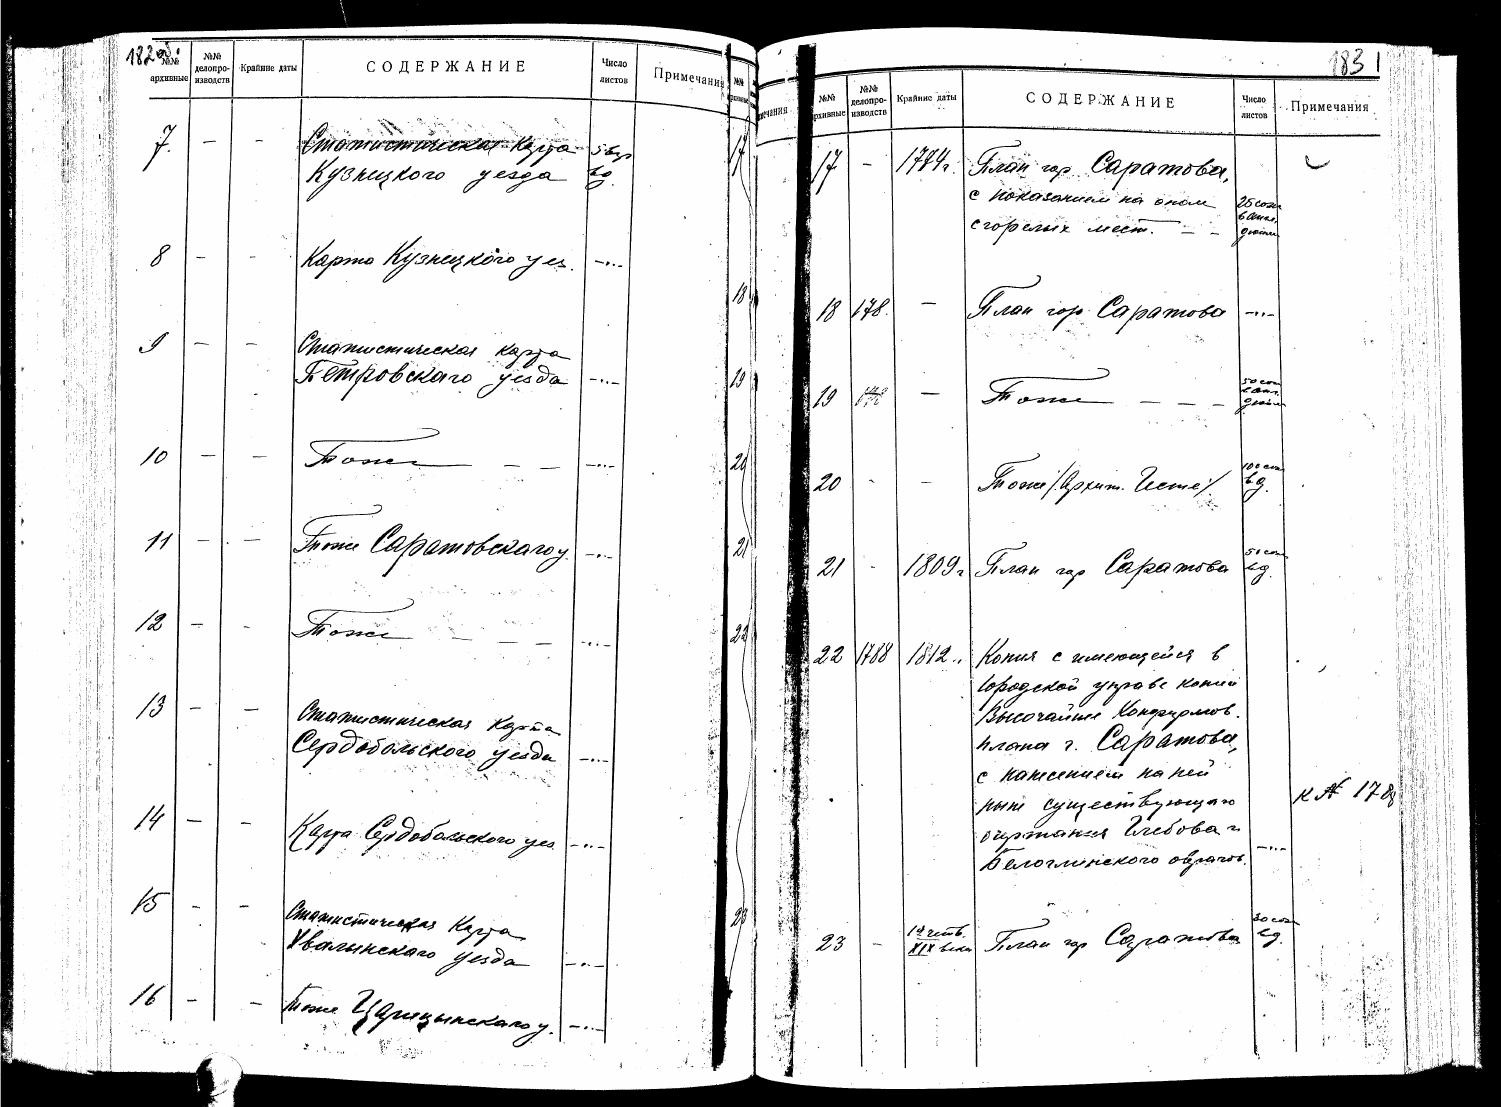 182 об.
№№ архивные
№№ делопро-изводств
Крайние даты
СОДЕРЖАНИЕ
Число листов
Примечания
7. — — Статистическая Карта 5 вер.
Кузнецкого уезда в д.
8 — — Карта Кузнецкого уез. —"—
9 — — Статистическая Карта
Петровскаго уезда —"—
10 — — Тоже — — —"—
11 — — Тоже Саратовскаго у. —"—
12 — - Тоже — — — —"—
13 — — Статистическая Карта
Сердобольского уезда —"—
14 — — Карта Сердобольского уез. —"—
15 — — Статистическая Карта
Хвалынскаго уезда —"—
16 — — Тоже Царицынскаго у. —"—
№№
архивные
17
18
19
20
21
22
23
183
мечания
№№ архивные
№№ делопро-изводств
Крайние даты
СОДЕРЖАНИЕ
Число листов
Примечания
17 — 1774 г. План гор. Саратова,
с показанием на оном 25 саж.
сгорелых мест. — — в англ. дюйме
18 178. — План гор. Саратова —"—
19 — Тоже — — — 50 саж. в англ. дюйме
20 - - Тоже /Архит. / 100 саж. в д.
21 - 1809 г План гор Саратова 50 саж. в д.
22 1788 1812 г. Копия с имеющейся в
Городской управе копии
Высочайше Конфирмов.
плана г. Саратова,
с нанесением на ней
ныне существующаго
очертания Глебова и
Белоглинского оврагов. —"—
к № 178
23 — 1я четв. XIX века План гор Саратова 50 саж. в д.